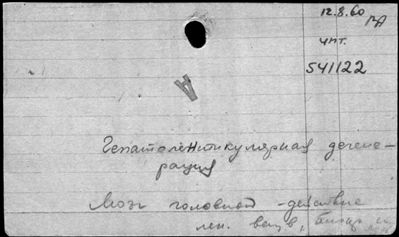 12.8.60
чит.
541122
А
Гепатолентикулярная дегене-
рация
Мозг головной - действие
лек. вещ-в,